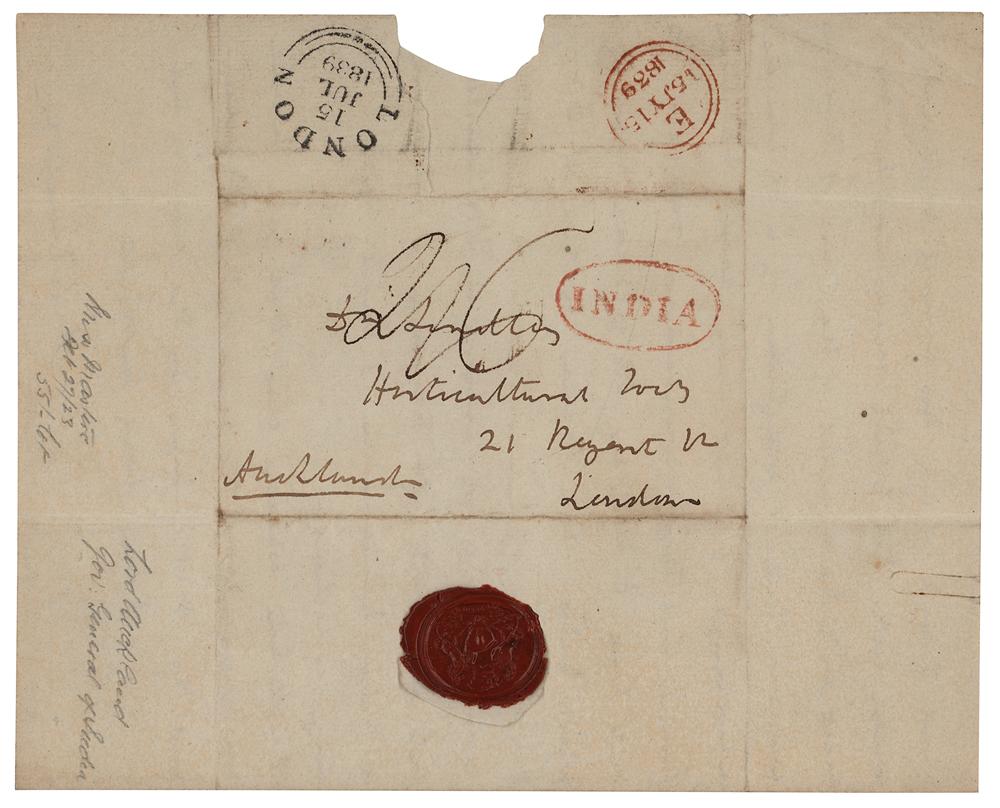 LONDON
15
JUL
1839
E
15 JY 15
1839
INDIA
Dr Lindley
Horticultural Socy
21 Regent St
London
Auckland
Feb 27/23
Lord Auckland
Gov: General of India